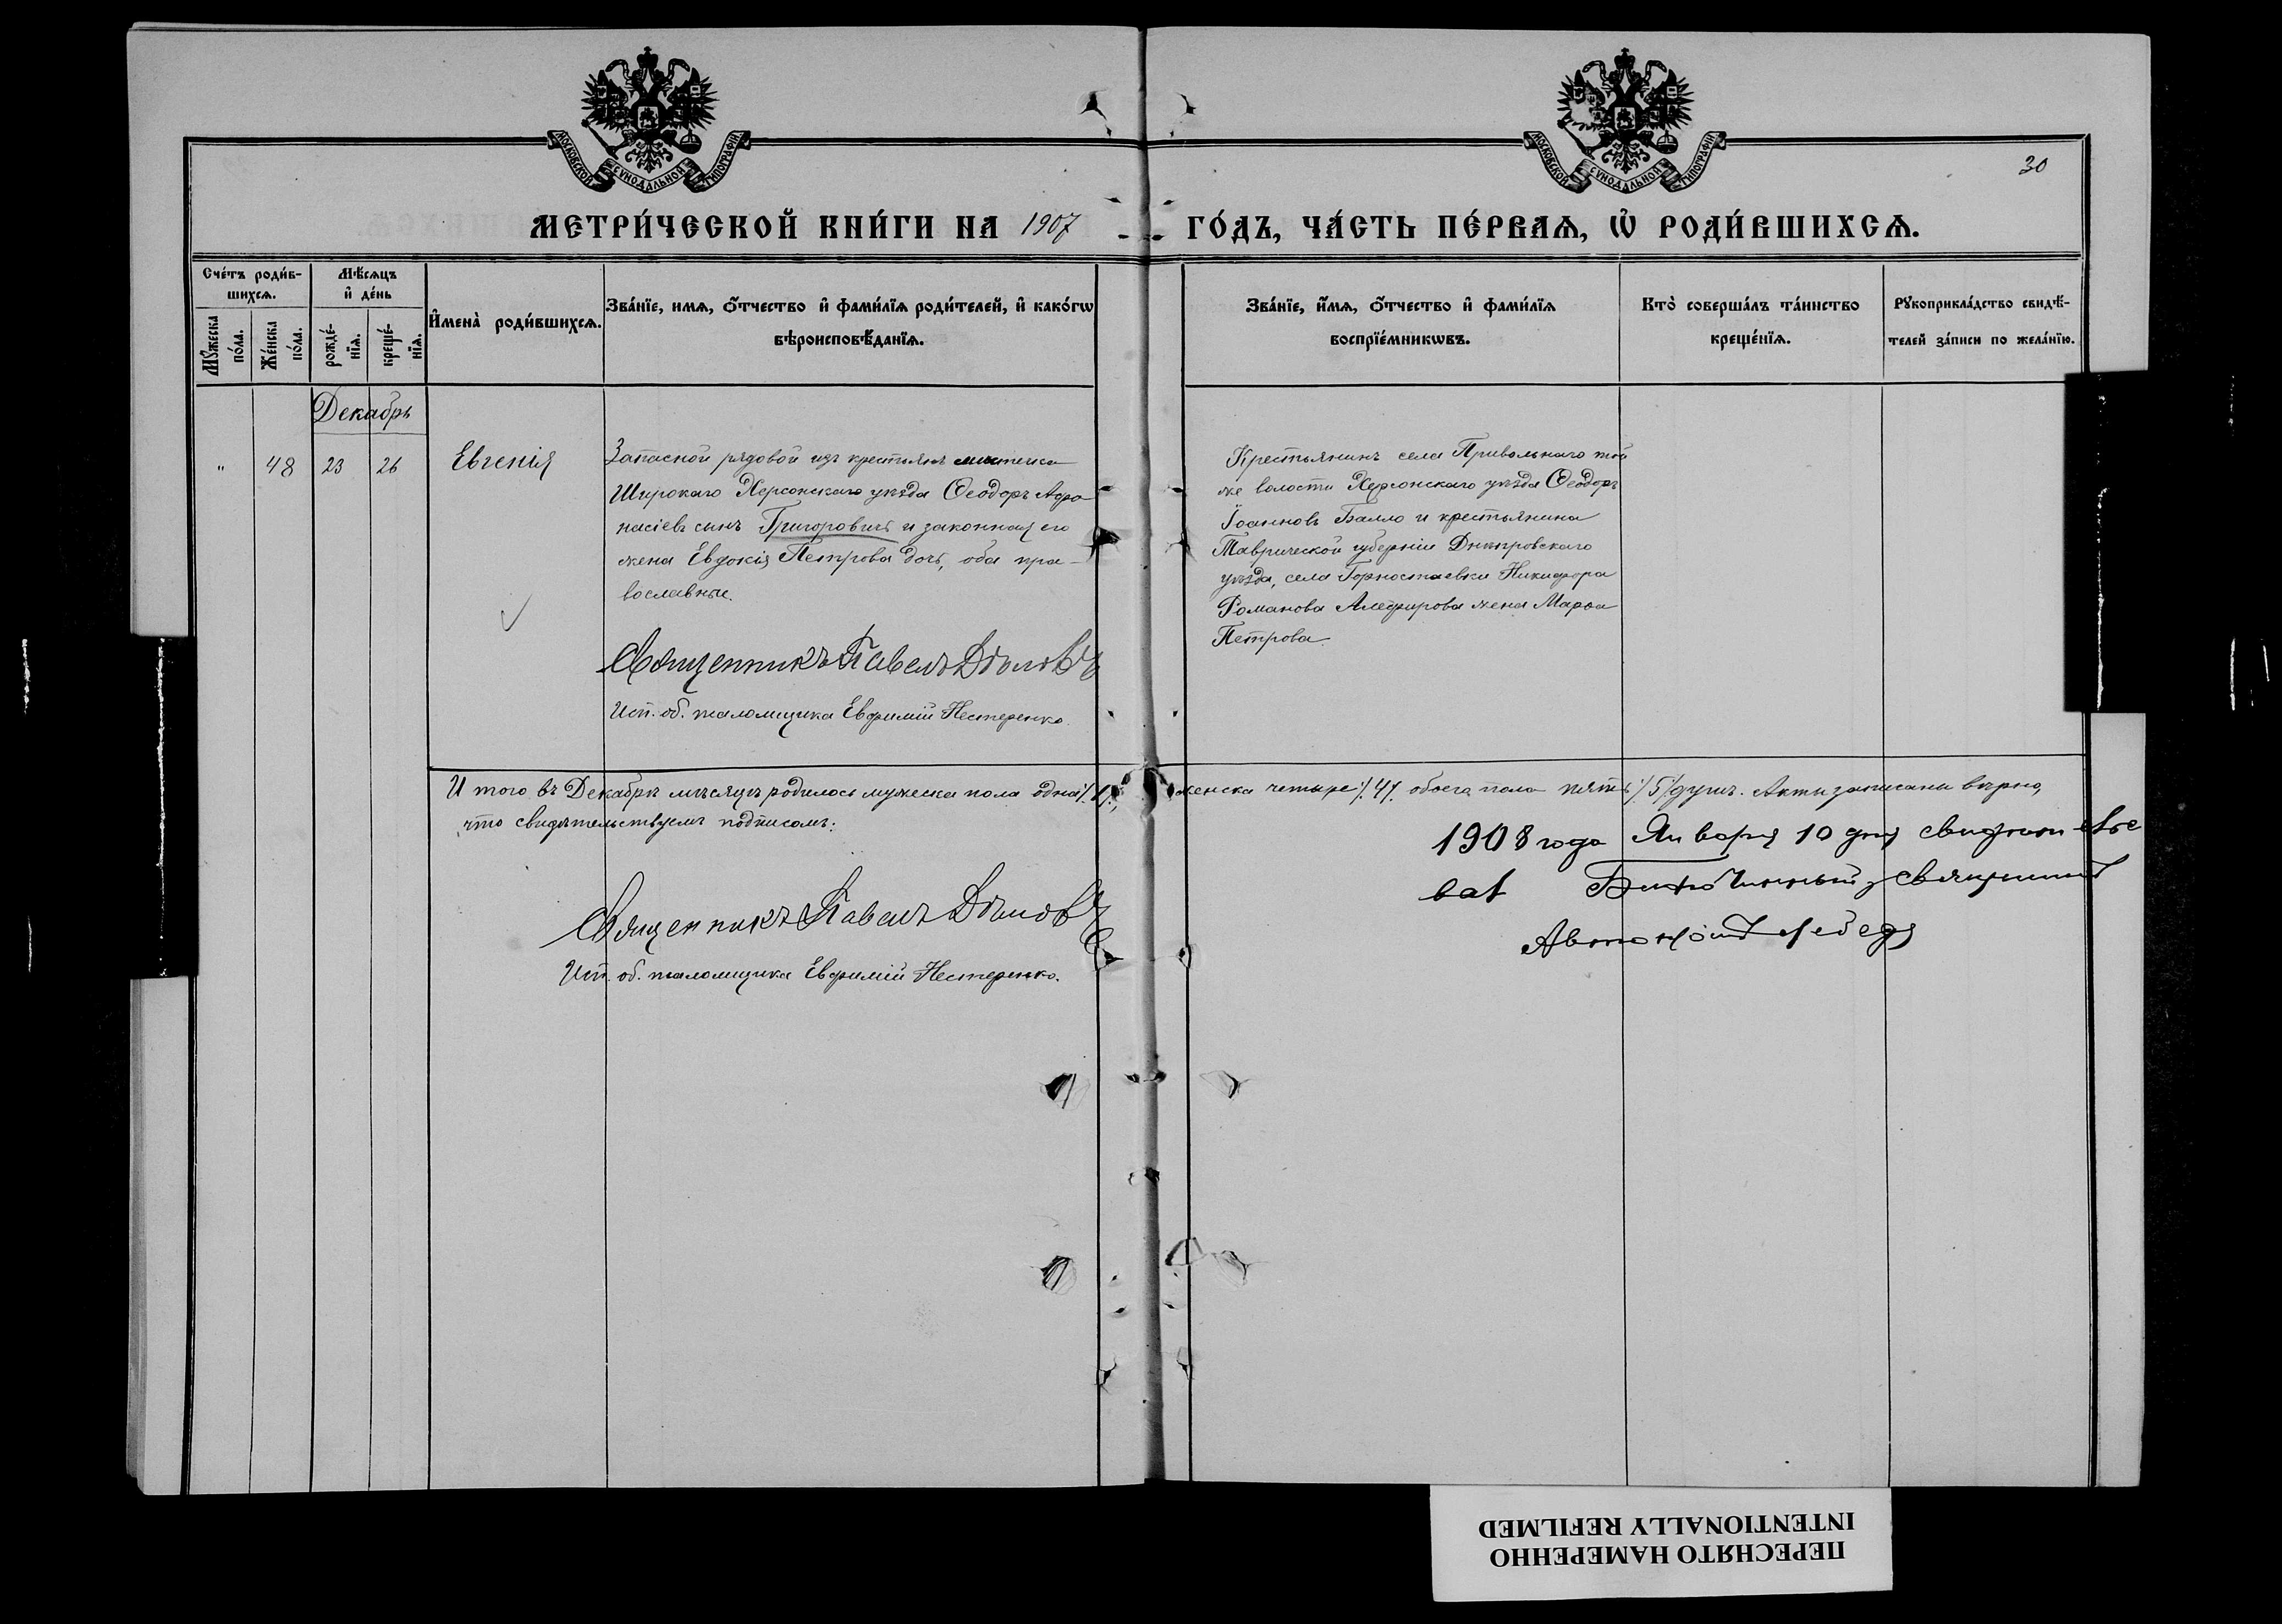 МОСКОВСКОЙ СУНОДАЛЬНОЙ ТИПОГРАФІИ
МОСКОВСКОЙ СУНОДАЛЬНОЙ ТИПОГРАФІИ
30
МЕТРИ́ЧЕСКОЙ КНИ́ГИ НА 1907 ГО́ДЪ, ЧА́СТЬ ПЕ́РВАѦ, Ѡ҆ РОДИ́ВШИХСѦ.
Сче́тъ роди́в-
шихсѧ.
Мꙋ́жеска
по́ла.
Же́нска
по́ла.
Мѣ́сѧцъ
и҆ де́нь
рожде́-
нїѧ.
креще́-
нїѧ.
И҆мена̀ роди́вшихсѧ.
Зва́нїе, имѧ, ѻ҆́тчество и҆ фами́лїѧ роди́телей, и҆ како́гѡ
вѣроисповѣ́данїѧ.
Зва́нїе, и҆́мѧ, ѻ҆́тчество и҆ фами́лїѧ
воспрїе́мникѡвъ.
Кто̀ соверша́лъ та́инство
креще́нїѧ.
Рꙋкоприкла́дство свидѣ́-
телей за́писи по жела́нїю.
Декабрь
" 48 23 26 Евгенія
Запасной рядовой изъ крестьянъ мѣстечка
Широкаго Херсонскаго уѣзда Ѳеодоръ Афа-
насіевъ сынъ Григоровичъ и законная его
жена Евдокія Петрова дочь, оба пра-
вославные.
Священникъ Павелъ
Исп. об. псаломщика Евфимій Нестеренко.
Крестьянинъ села Привольнаго той
же волости Херсонскаго уѣзда Ѳеодоръ
Іоанновъ Балло и крестьянина
Таврической губерніи Днѣпровскаго
уѣзда, села Горностаевки Никифора
Романова жена Марѳа
Петрова.
И того въ Декабрѣ мѣсяцѣ родилось мужеска пола одна /1/, женска четыре /4/. обоего пола пять /5/ душъ. Акты записаны вѣрно,
что свидѣтельствуемъ подписомъ:
Священникъ Павелъ
Исп. об. псаломщика Евфимій Нестеренко.
1908 года Января 10 дня свидѣтельство-
валъ Благочинный Священникъ
ПЕРЕСНЯТО НАМЕРЕННО
INTENTIONALLY REFILMED